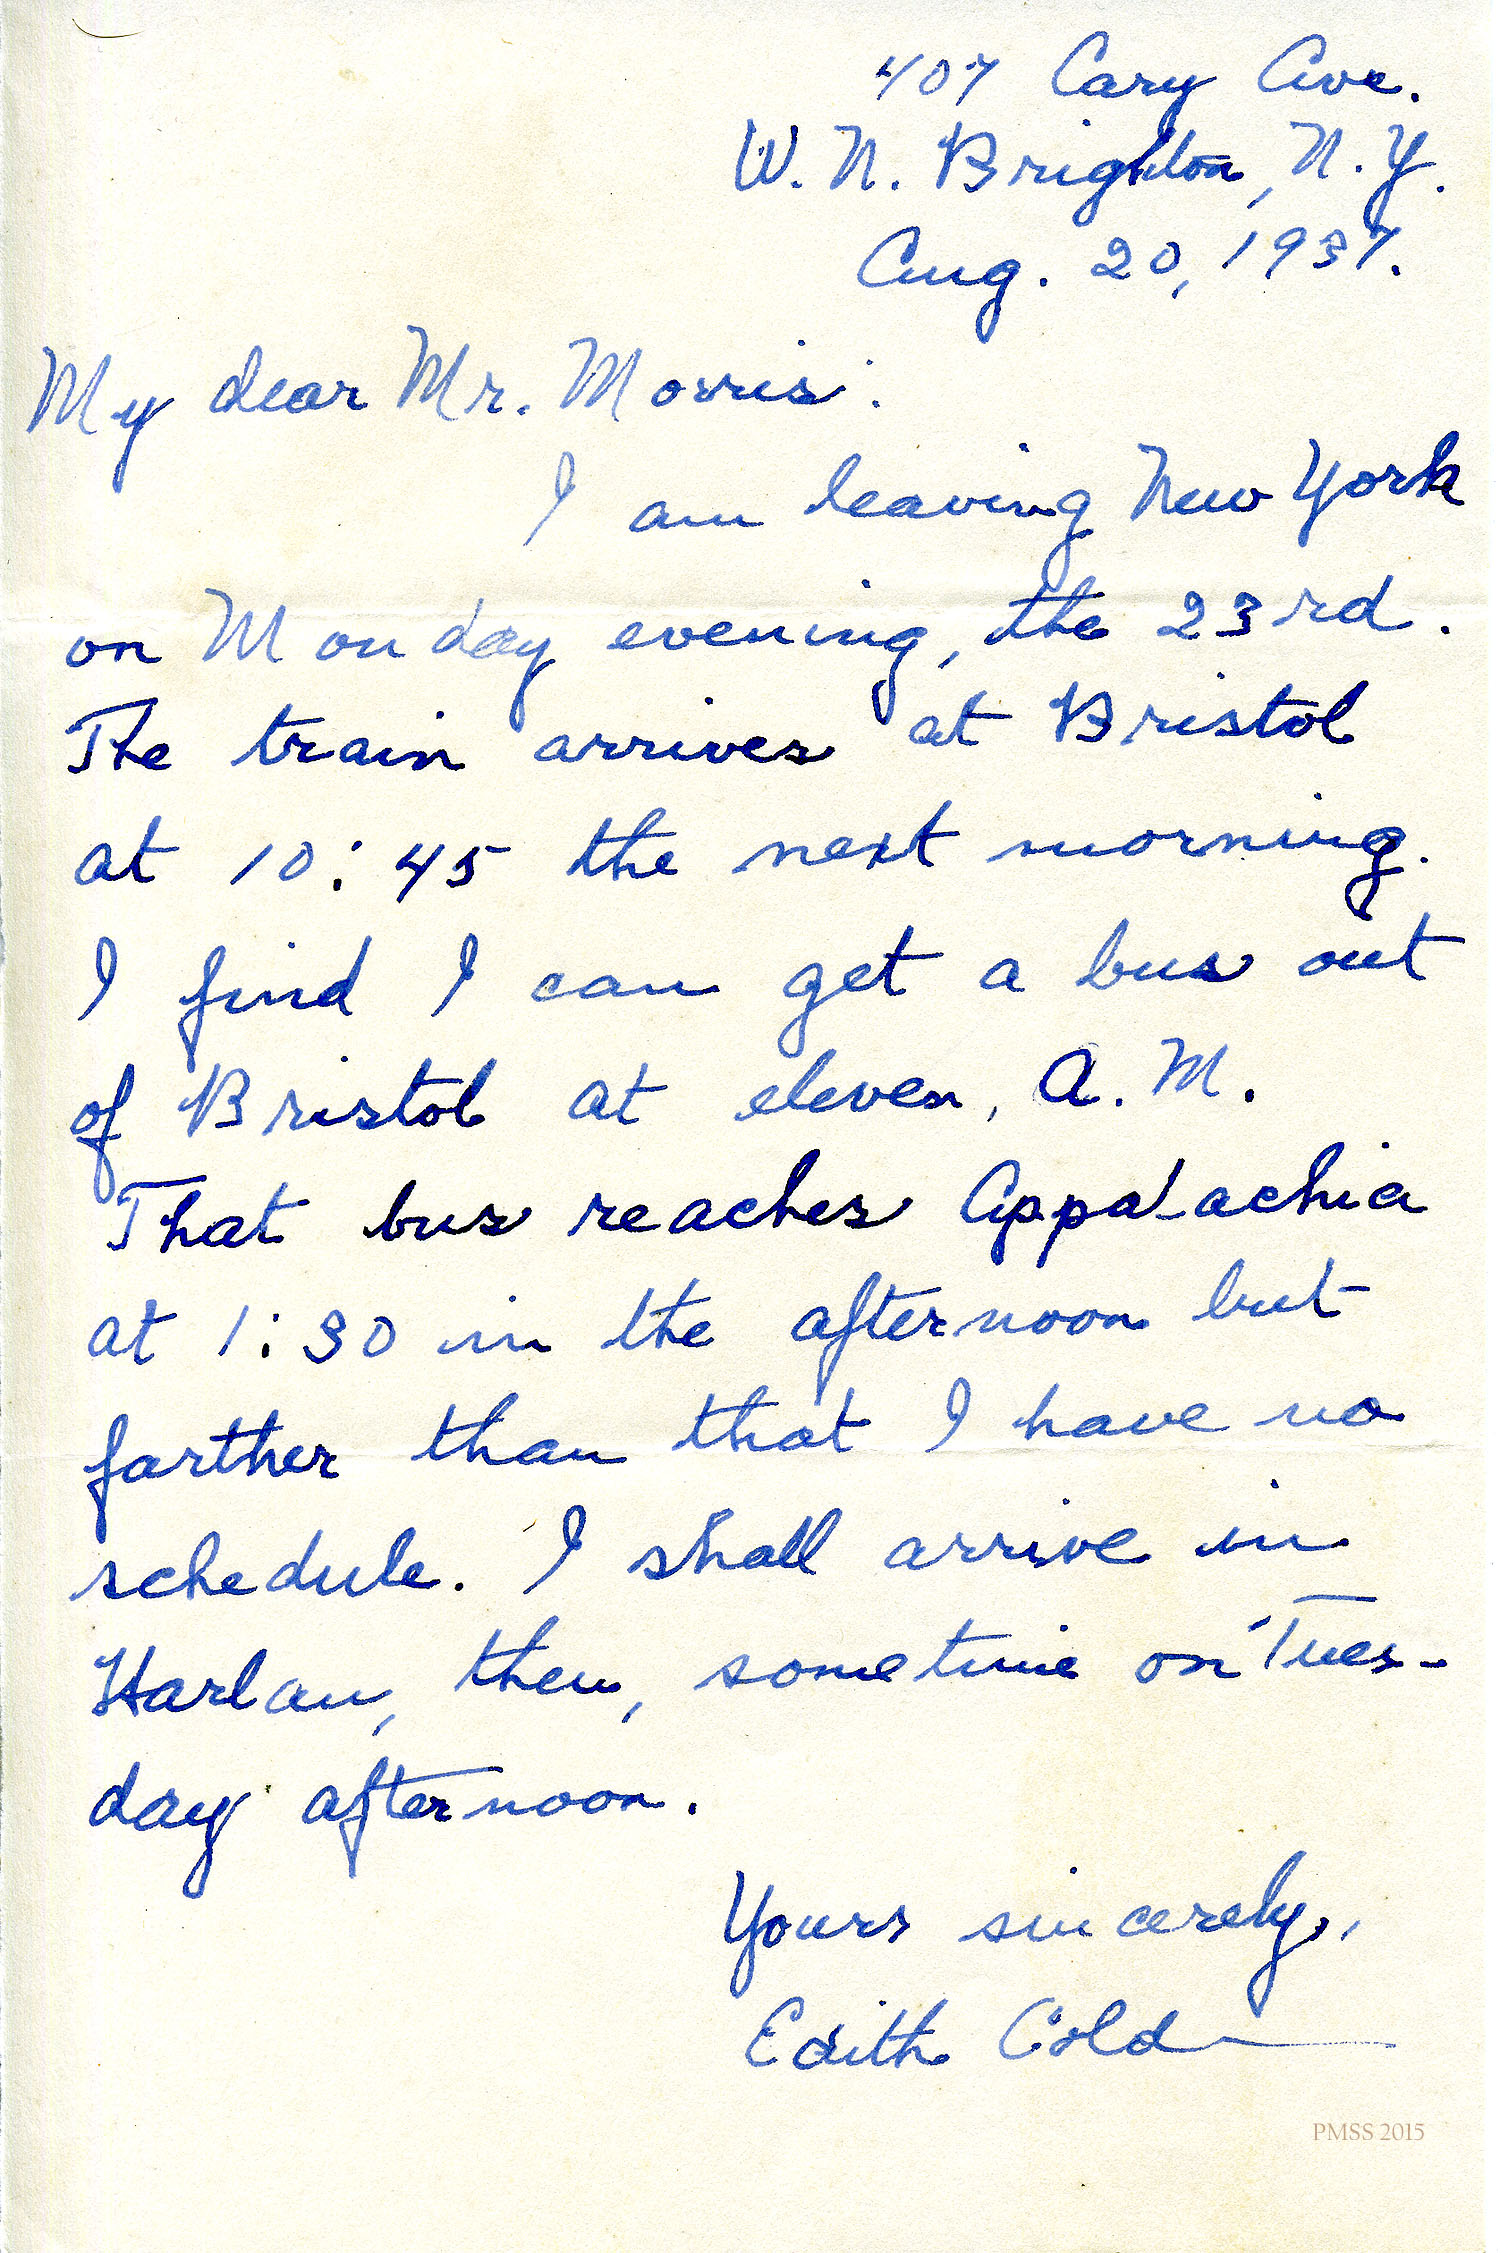 407 Cary Ave.
W. N. Brighton, N.Y.
Aug. 20, 1937.
My dear Mr. Morris:
I am leaving New York
on Monday evening, the 23rd.
The train arrives at Bristol
at 10:45 the next morning.
I find I can get a bus out
of Bristol at eleven, A.M.
That bus reaches Appalachia
at 1:30 in the afternoon but
farther than that I have no
schedule. I shall arrive in
Harlan, then, sometime on Tues-
day afternoon.
Yours sincerely,
Edith Cold
PMSS 2015